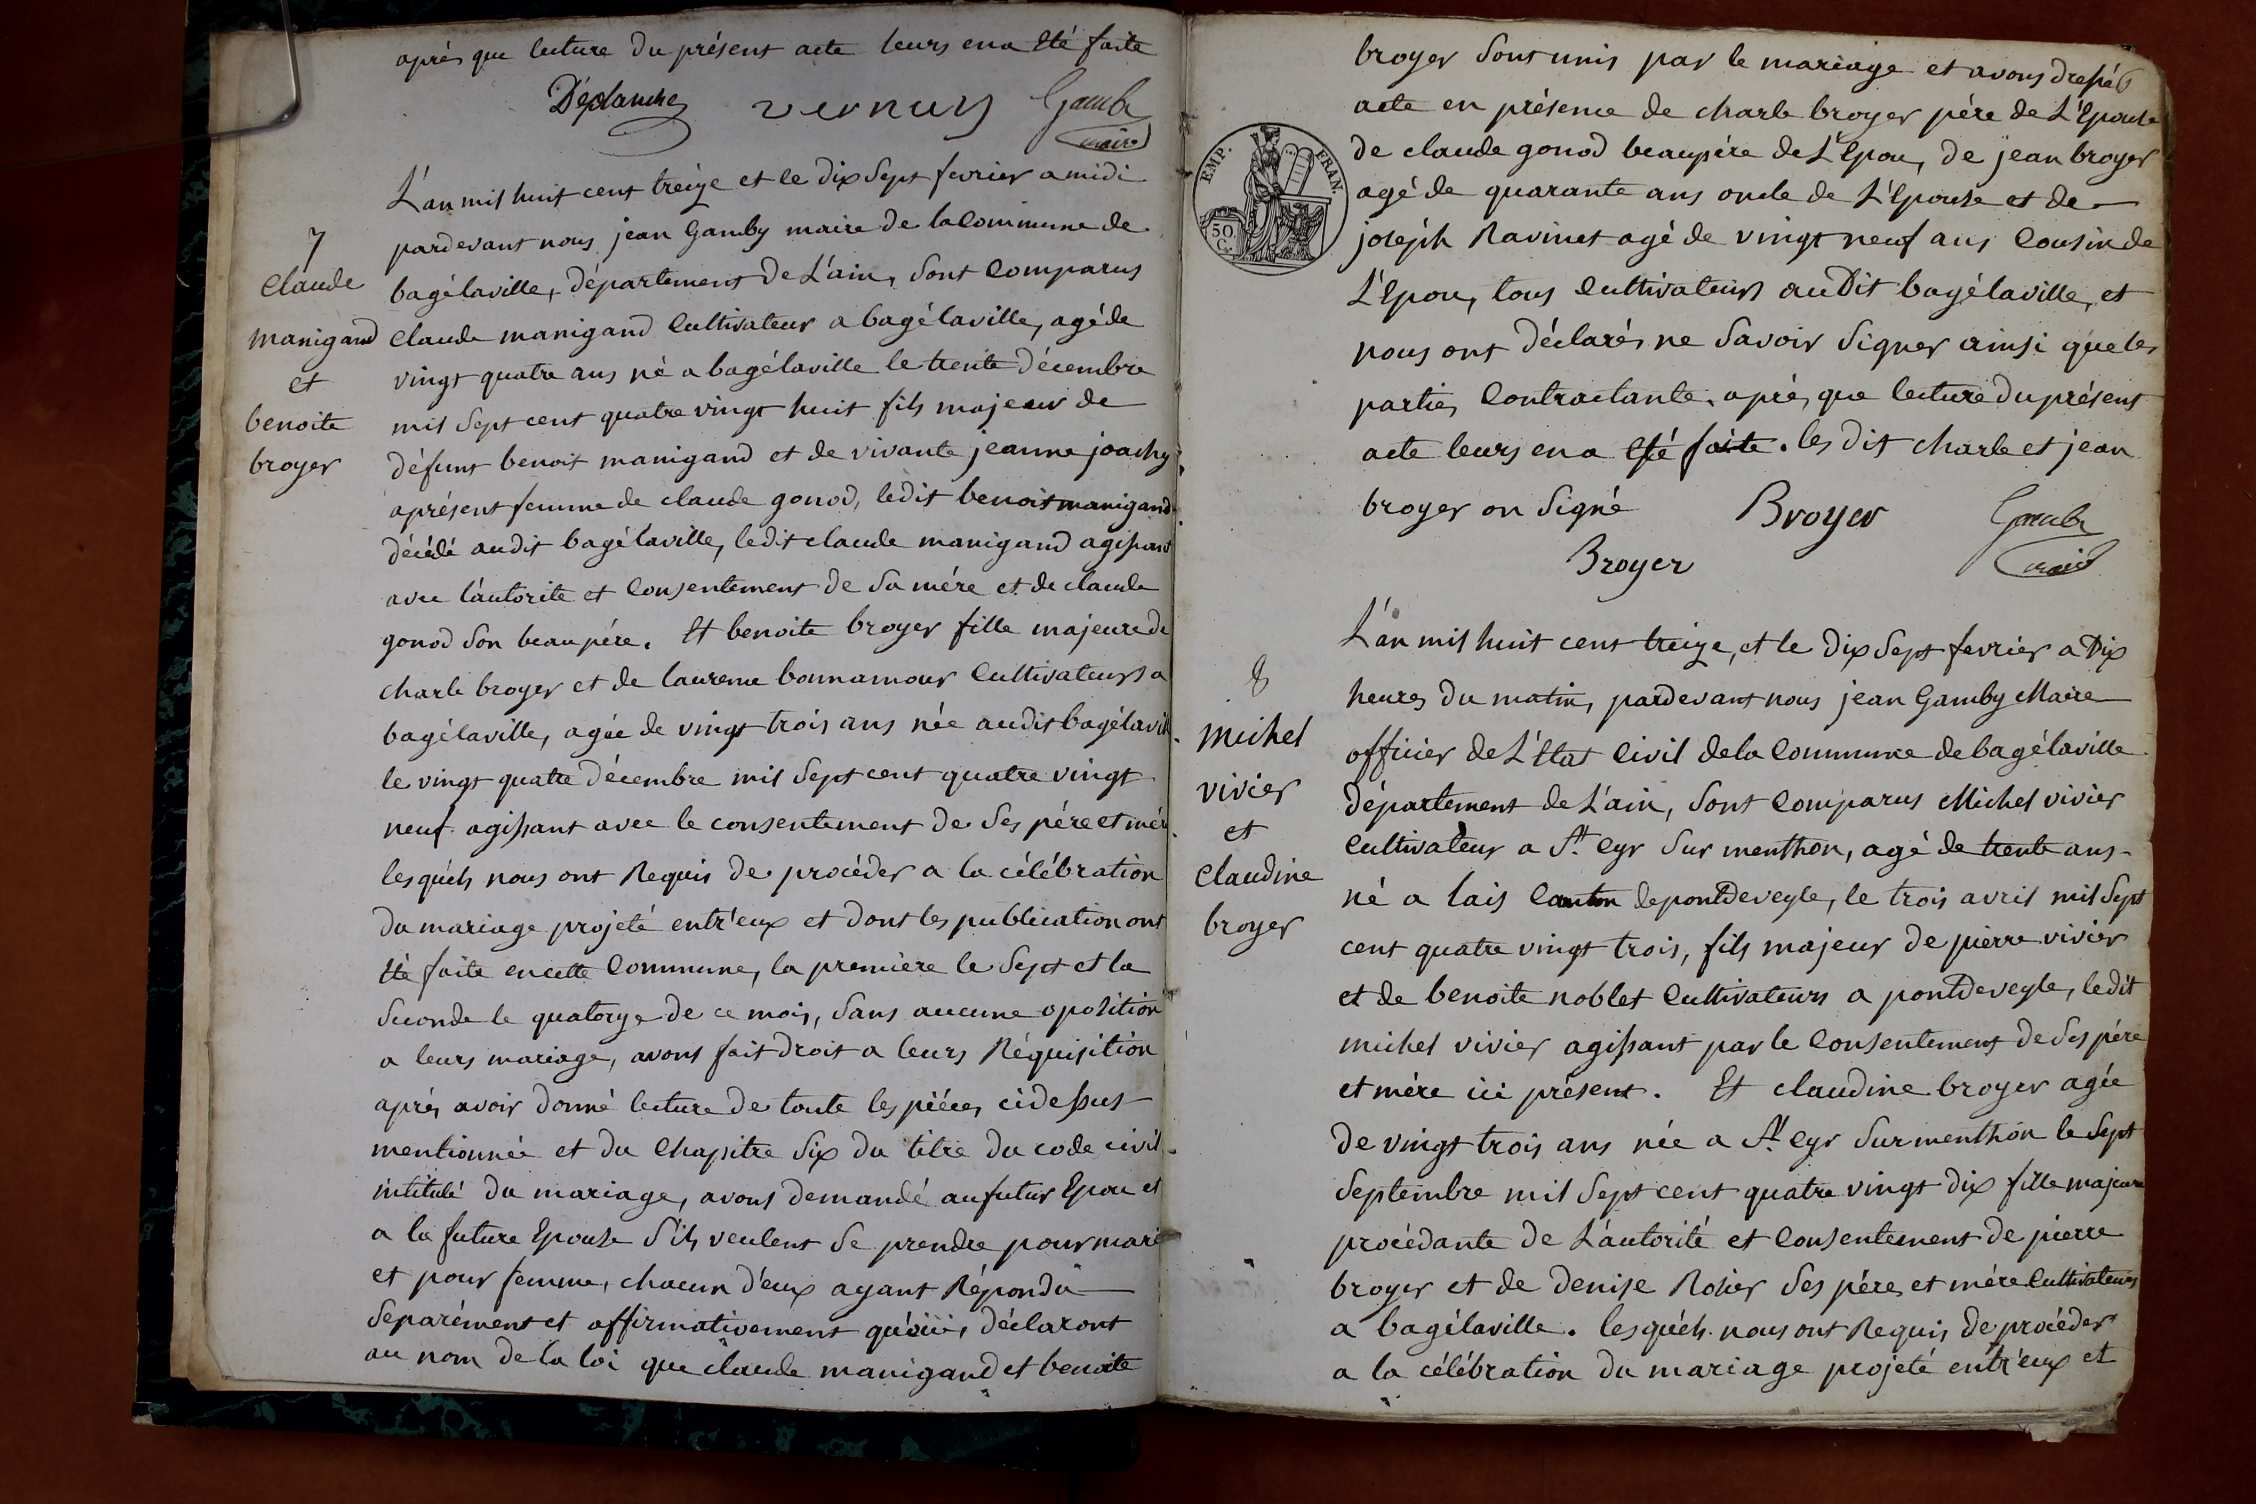 après que lecture du présent acte leurs en a Eté faite
Déplanches vernus Gamby
maire
7
Claude
manigand
et
benoite
broyer
L'an mil huit cent treize et le dix Sept fevrier a midi
pardevant nous jean Gamby maire de la Commune de
bagélaville, département de L'ain, Sont Comparus
Claude manigand Cultivateur a bagélaville, agé de
vingt quatre ans né a bagélaville le trente décembre
mil Sept cent quatre vingt huit fils majeur de
défunt benoit manigand et de vivante jeanne joachy
aprésent femme de claude gonod, ledit benoit manigand
décédé audit bagélaville, ledit claude manigand agissant
avec l'autorite et Consentement de Sa mére et de claude
gonod Son beaupére. Et benoite broyer fille majeure de
charle broyer et de laurence bonnamour Cultivateurs a
bagélaville, agée de vingt trois ans née audit bagélavill
le vingt quatre décembre mil Sept cent quatre vingt
neuf agissant avec le consentement de Ses pére et mér
lesquéls nous ont Requis de procéder a la célébration
du mariage projeté entr'eux et dont les publication ont
Eté faite en cette Commune, la premiere le Sept et la
Seconde le quatorze de ce mois, Sans aucune oposition
a leurs mariage, avons fait droit a leurs Réquisition
aprés avoir donné lecture de toute les piéces cidessus
mentionnée et du Chapitre Six du titre du code civil
intitulé du mariage, avons demandé aufutur Epou et
a la future Epouse S'ils veulent Se prendre pour mari
et pour femme, chacun d'eux ayant Répondu
Separément et affirmativement qu'oüi, déclaront
au nom de la loi que claude manigand et benoite
broyer Sont unis par le mariage et avons dressé
acte en présence de charle broyer pére de L'Epouse
de claude gonod beaupére de L'Epou, de jean broyer
agé de quarante ans oncle de L'Epouse et de
joseph Ravinet agé de vingt neuf ans Cousin de
L'Epou, tous Cultivateurs audit bagélaville, et
nous ont déclarés ne Savoir Signer ainsi que les
parties Contractante. aprés que lecture du présent
acte leurs en a Eté faite. les dit charle et jean
broyer on Signé Broyer Gamby
Broyer maire
EMP. FRAN.
50
C.
8
Michel
vivier
et
Claudine
broyer
L'an mil huit cent treize, et le dix Sept fevrier a Dix
heures du matin, pardevant nous jean Gamby Maire
officier de L'Etat Civil de la Commune de bagélaville
département de L'ain, Sont Comparus Michel vivier
Cultivateur a St. Cyr Sur menthon, agé de trente ans
né a lais Canton de pontdeveyle, le trois avril mil Sept
cent quatre vingt trois, fils majeur de pierre vivier
et de benoite noblet Cultivateurs a pontdeveyle, ledit
michel vivier agissant par le Consentement de Ses pére
et mére ici présent. Et claudine broyer agée
de vingt trois ans née a St. Cyr Sur menthon le Sept
Septembre mil Sept cent quatre vingt dix fille majeure
procédante de L'autorité et Consentement de pierre
broyer et de denise Rosier Ses pére et mére Cultivateurs
a bagélaville. lesquéls nous ont Requis de procéder
a la célébration du mariage projeté entr'eux et